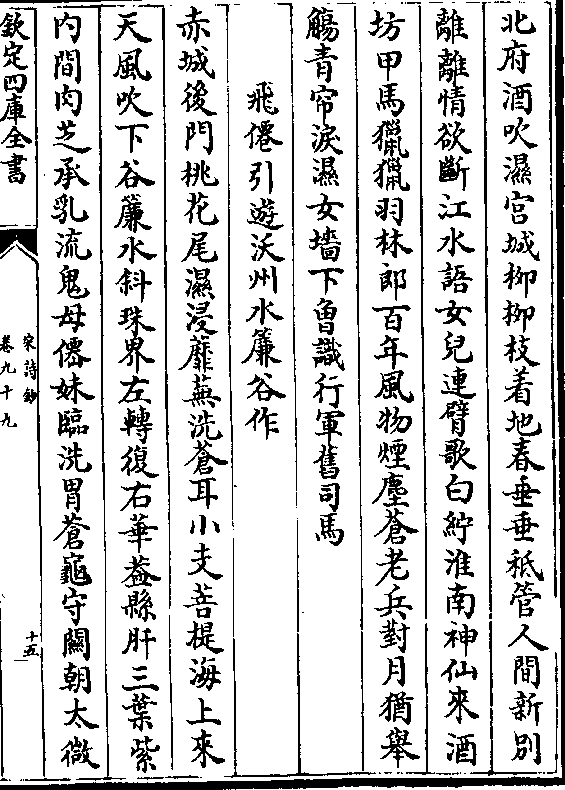 北府酒吹濕宮城柳柳枝着地春垂垂秪管人間新別
離離情欲斷江水語女兒連臂歌白紵淮南神仙來酒
坊甲馬獵獵羽林郎百年風物煙塵蒼老兵對月猶舉
觴青帘淚濕女墻下曾識行軍舊司馬
飛僊引遊沃州水簾谷作
赤城後門桃花尾濕浸蘼蕪洗蒼耳小支菩提海上來
天風吹下谷簾水斜珠界左轉復右華葢縣肝三葉紫
内間肉芝承乳流鬼母僊妹臨洗胃蒼龜守闗朝太微
欽定四庫全書
宋詩鈔
卷九十九
十五